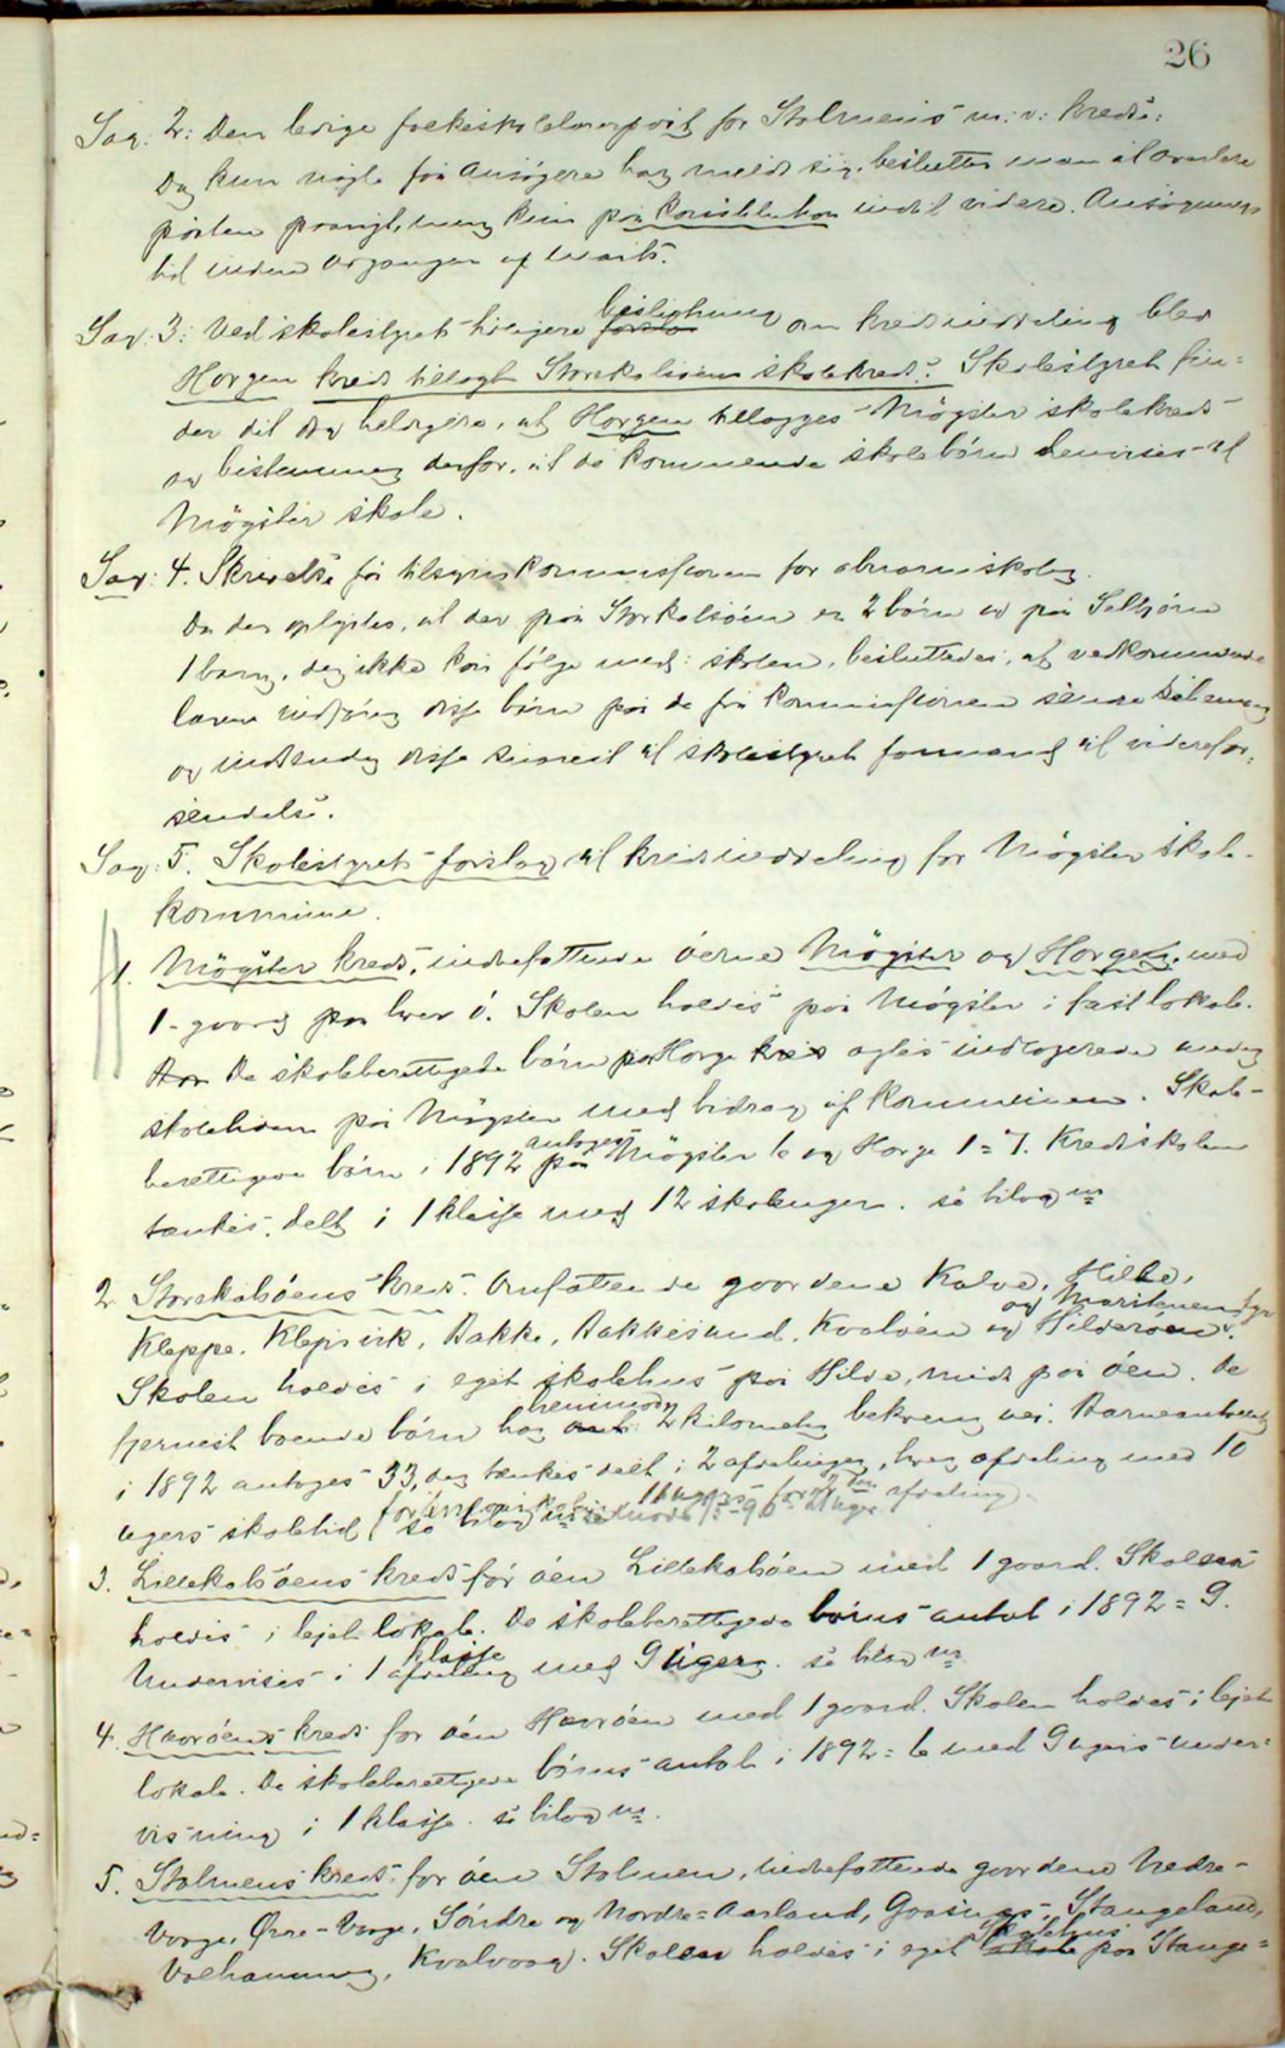 26
Sag: 2: Den ledige folkeskolelærerpost for Stolmens m: v: kreds:
Da kun nogle få ansögere har meldt sig, beslutter man at overlære
posten   men kun på konstitution indtil videre. Ansögnings
tid inden Udgangen af marts.
Sag: 3: Ved skolestyrets tidligere beslutning om kredsinddeling blev
Horgen kreds tillagt Storekalsöens skolekreds. Skolestyret fin=
der det dog heldigere, at Horgen tillægges Mögster skolekreds
og bestemmer derfor, at de kommende skolebörn henvises til
Mögster skole.
Sag: 4. Skrivelse fra tilsynskommissionen for abnormskolen.
Da der oplystes, at der på Storkalsöen er 2 börn og på Selbjörn
1 barn, der ikke kan fölge med i skolen, besluttedes, at vedkommende
lærer indförer disse börn på de fra kommissionen sendte
og indsender disse snarest til skolestyrets formand til viderefor=
sendelse.
Sag: 5. Skolestyrets forslag til kredsinddeling for Mögster skole-
kommune.
1. Mögster kreds, indbefattende öerne Mögster og Horgen, med
1 gaard på hver ö. Skolen holdes på Mögster i fast lokale.
De skoleberettigede börn på Horge agtes indlogerede under
skoletiden på Mögster med bidrag af kommunen. Skole-
berettigede börn i 1892 antages på Mögster 6 og Horge 1 = 7. Kredsskolen
tænkes delt i 1 klasse med 12 skoleuger. se bilag nr
2 Storekalsöens kreds. Omfatter de gaardene Kalve, Hilde,
Kleppe, Klepsvik, Bakke, Bakkesund, Kvalöen og Hilderöen. og
Skolen holdes i eget skolehus på Hilde, midt på öen. De
fjernest boende börn har henimod 2 kilometer bekvem vei. Barneantallet
i 1892 antages 33, der tænkes delt i 2 afdelinger, hver afdeling med 10
ugers skoletid for   11 uger for 2den afdeling se bilag nr
3. Lillekalsöens kreds för öen Lillekalsöen med 1 gaard. Skolen
holdes i lejet lokale. De skoleberettigede börns antal i 1892 = 9.
Undervises i 1 klasse med 9 uger. se bilag nr
4. Hævröens kreds for öen Hævröen med 1 gaard. Skolen holdes i lejet
lokale. De skoleberettigede börns antal i 1892 = 6 med 9 ugers under=
visning i 1 klasse. se bilag nr.
5. Stolmens kreds, for öen Stolmen, indbefattende gaardene Nedre-
Vorge, Övre-Vorge, Söndre og Nordre=Aarland, Gaasnes, Stangeland,
Valhammer, Kvalvaag. Skolen holdes i eget Skolehus på Stange=